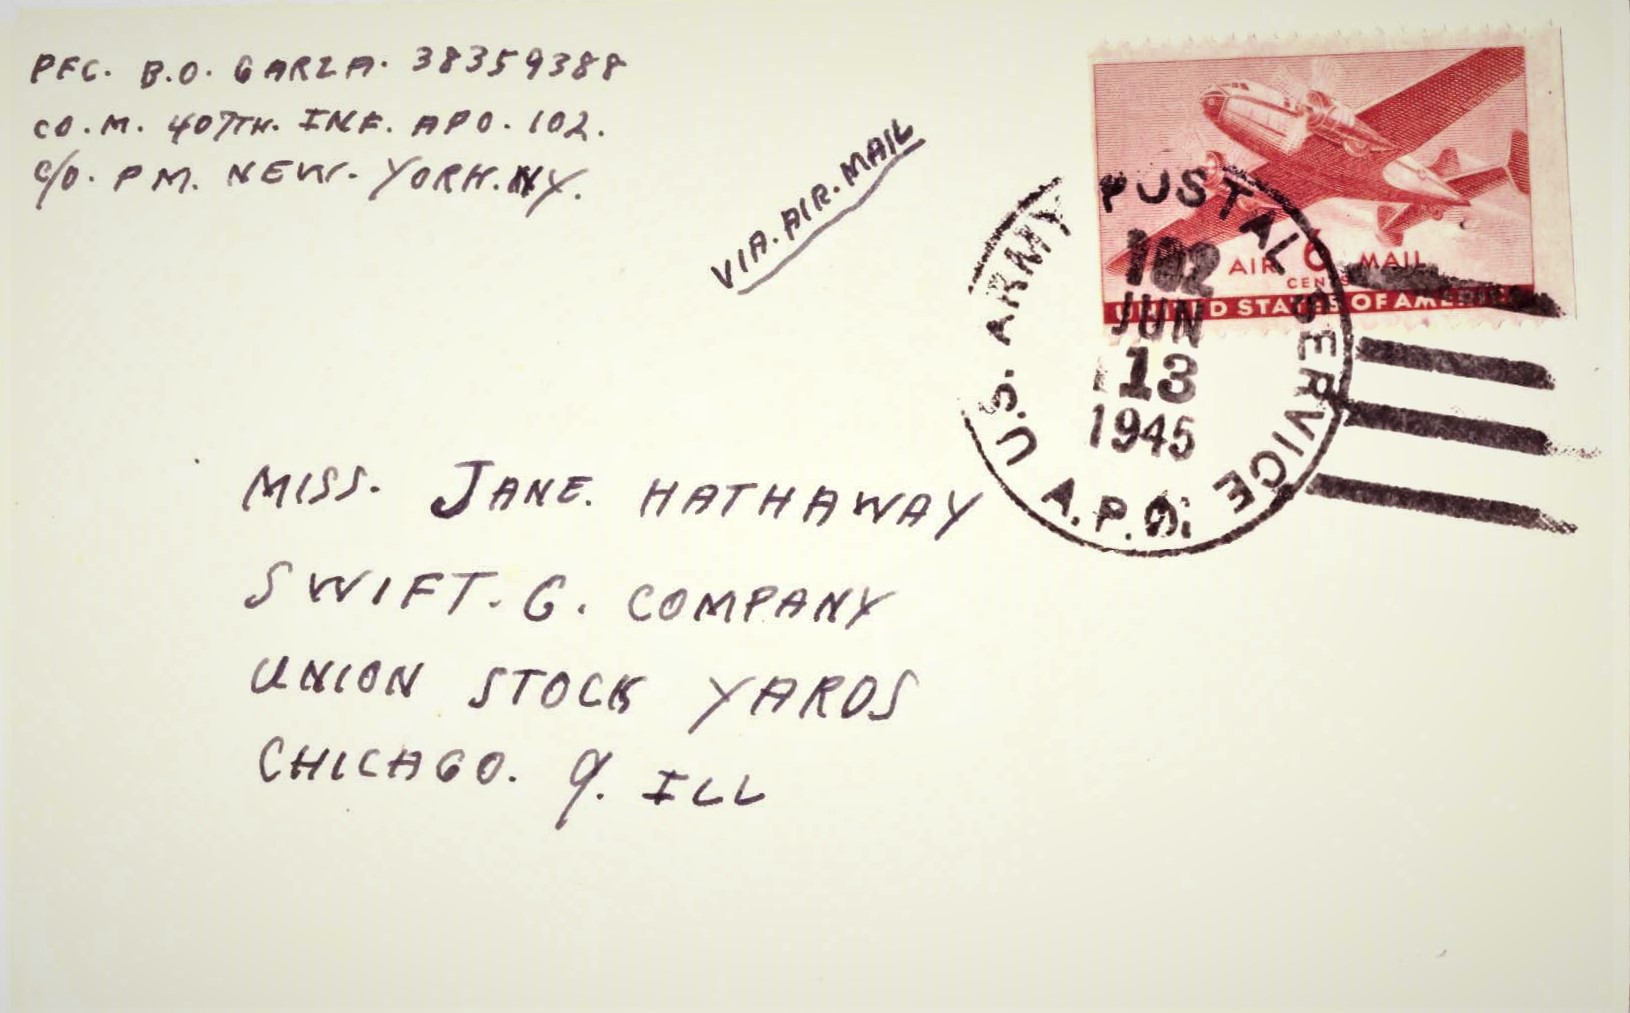 PFC. B.O. GARZA. 38359388
CO. M. 407TH. INF. APO. 102.
C/O. PM. NEW. YORK. NY.
VIA. AIR. MAIL
AIR 6 MAIL
CENTS
UNITED STATES OF AMERICA
U.S. ARMY POSTAL SERVICE
A.P.O.
102
JUN
13
1945
MISS. JANE. HATHAWAY
SWIFT. G. COMPANY
UNION STOCK YARDS
CHICAGO. 9. ILL